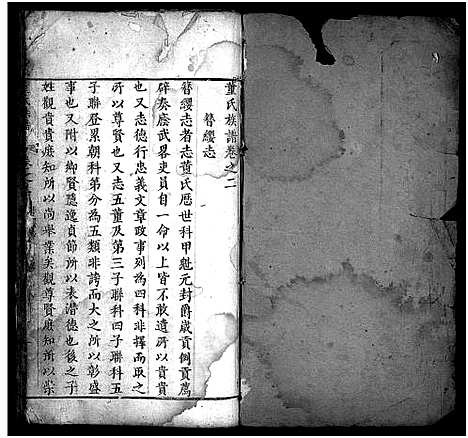 董氏族譜卷之二
簪纓志
簪纓志者志董氏厯世科甲魁元封爵歲貢例貢薦
辟奏廕武畧吏員自一命以上皆不敢遺所以貴貴
也又志德行忠義文章政事列為四科非擇而取之
所以尊賢也又志五董及第三子聯科四子聯科五
子聯登累朝科第分為五類非誇而大之所以彰盛
事也又附以鄉賢隱逸貞節所以表潛德也後之子
姓觀貴貴庶知所以尚舉業矣觀尊賢庶知所以崇